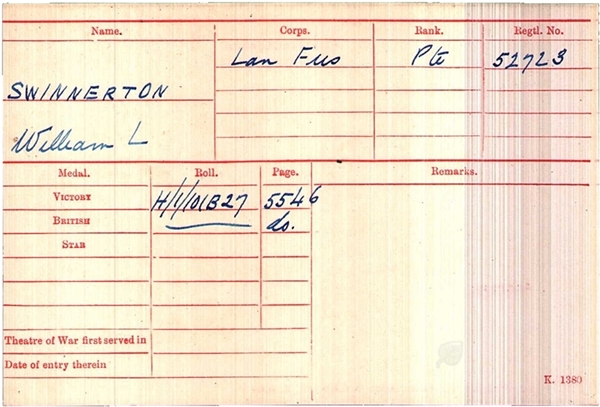 Name. Corps. Rank. Regtl. No.
Lan Fus Pte 52723
SWINNERTON
William L
Medal. Roll. Page. Remarks.
VICTORY H/1/101B27 5546
BRITISH do.
STAR
Theatre of War first served in
Date of entry therein
K. 1380